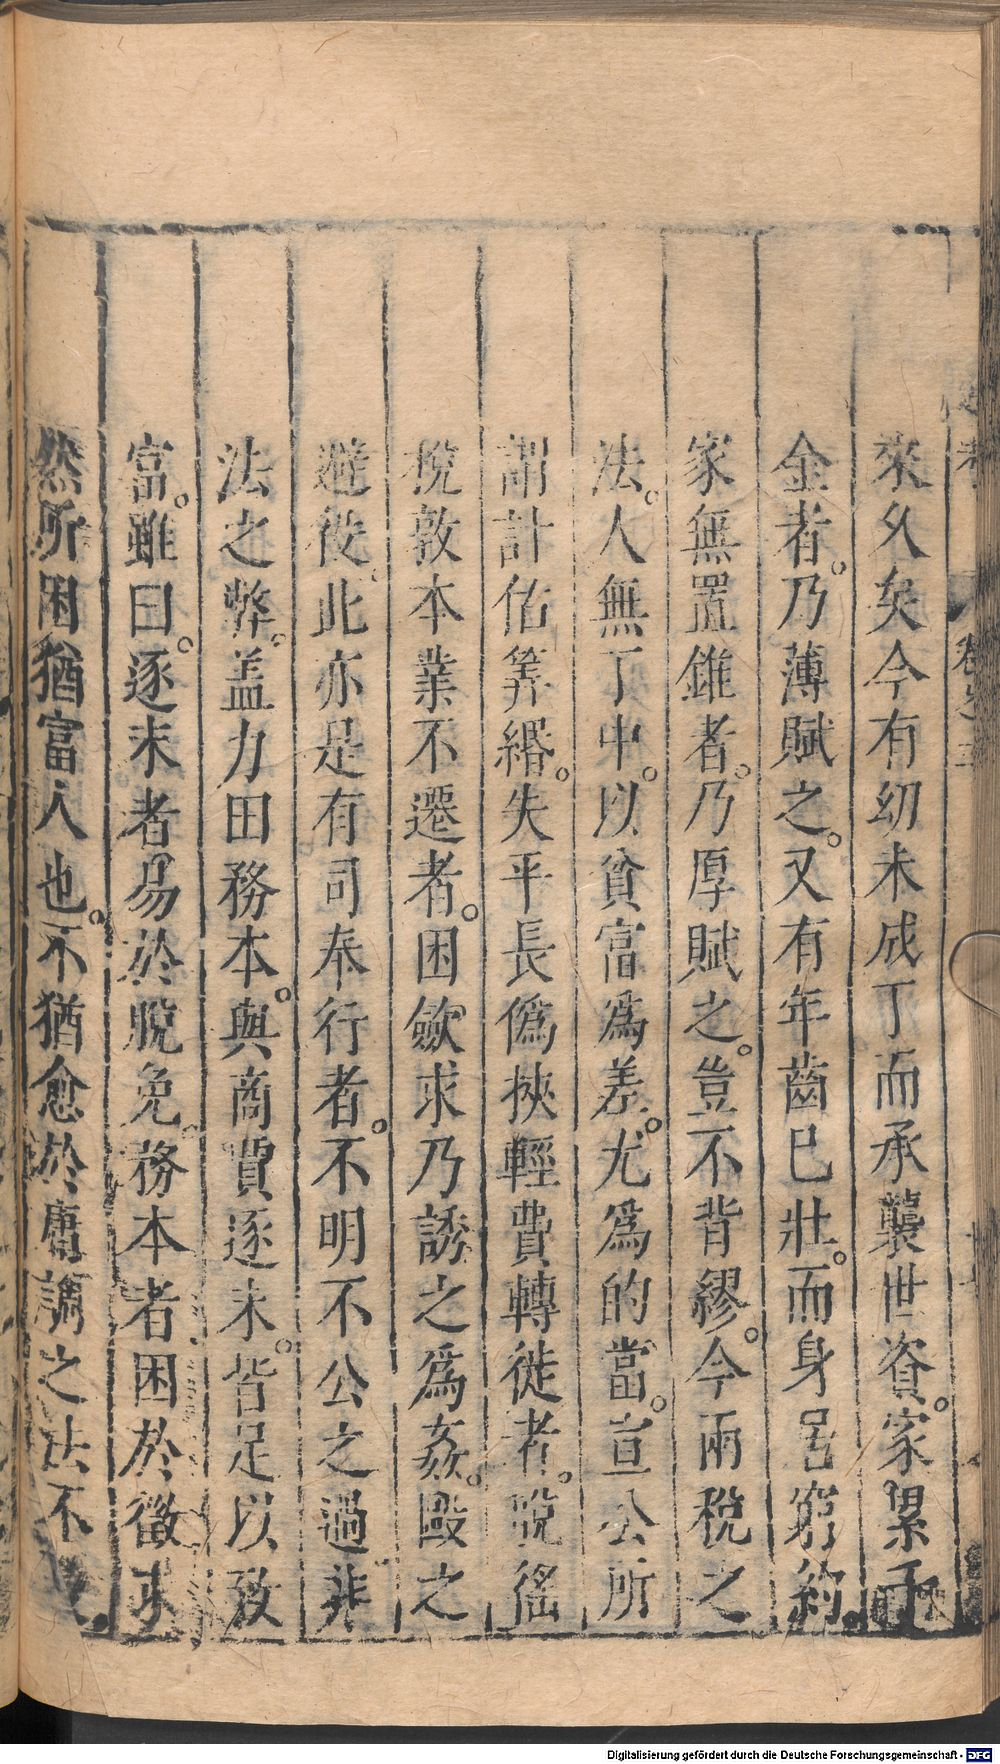 來久矣今有幼未成丁而承襲世資。家累千
金者。乃薄賦之。又有年齒已壯。而身居窮約
家無置錐者。乃厚賦之。豈不背繆。今兩稅之
法。人無丁中。以貧富爲差。尤爲的當。宣公所
謂計估筭緡。失平長僞挾輕費轉徙者。脫徭
稅敦本業不遷者。困斂求乃誘之爲姦。毆之
避役。此亦是有司奉行者。不明不公之過非
法之弊。盖力田務本。與商賈逐末。皆足以致
富。雖曰。逐末者易於脫免。務本者困於徵求
然所困猶富人也。不猶愈於庸調之法不
考
卷之三
Digitalisierung gefördert durch die Deutsche Forschungsgemeinschaft - DFG